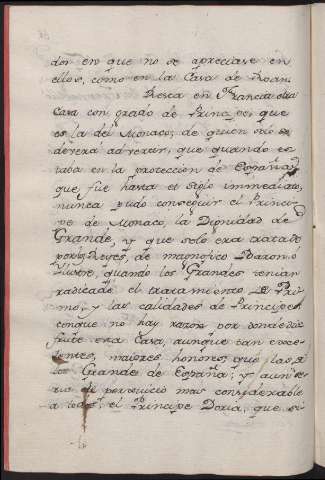 dos en que no se apreciase en
ellos, como en la Casa de Roan.
Resta en Francia otra
Casa con grado de Principe, que
es la del Monaco; de quien solo se
deverá advertir, que quando es
taba en la proteccion de España,
que fué hasta el siglo immediato,
nunca pudo conseguir el Princi
pe de Monaco, la Dignidad de
Grande, y que solo era tratado
por los Reyes, de magnifico Baron o
Ilustre, quando los Grandes tenian
radicado el tratamiento de Pri
mo; y las calidades de Principe
conque no hay razon por donde dis
frute esta Casa, aunque tan exce
lentes, maiores honores, que las de
los Grande de España; y aun se
ria de perjuicio mas considerable
a todos, el Principe Doria, que si